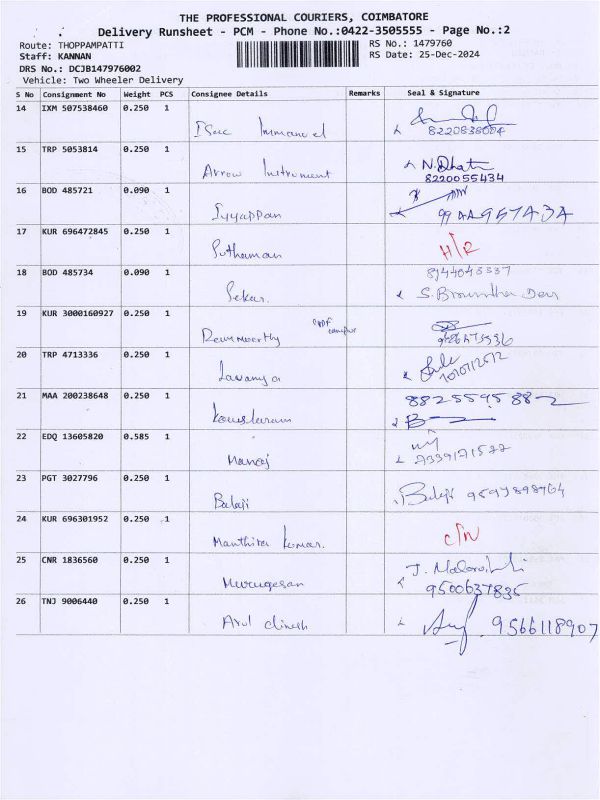 THE PROFESSIONAL COURIERS, COIMBATORE
Delivery Runsheet - PCM - Phone No.:0422-3505555 - Page No.:2
Route: THOPPAMPATTI
RS No.: 1479760
Staff: KANNAN
RS Date: 25-Dec-2024
DRS No.: DCJB147976002
Vehicle: Two Wheeler Delivery
S No Consignment No Weight PCS Consignee Details Remarks Seal & Signature
14 IXM 507538460 0.250 1
Isac Immanuel
15 TRP 5053814 0.250 1
Arrow Instrument
8220055434
16 BOD 485721 0.090 1
Iyyappan
17 KUR 696472845 0.250 1
Puthaman H/R
18 BOD 485734 0.090 1
Sekar.
19 KUR 3000160927 0.250 1
campus
20 TRP 4713336 0.250 1
Lavanya
21 MAA 200238648 0.250 1
22 EDQ 13605820 0.585 1
Manoj
23 PGT 3027796 0.250 1
Balaji Balaji
24 KUR 696301952 0.250 1
Manthira kumar. C/N
25 CNR 1836560 0.250 1
Murugesan 9500637835
26 TNJ 9006440 0.250 1
Arul dinesh 9566118907